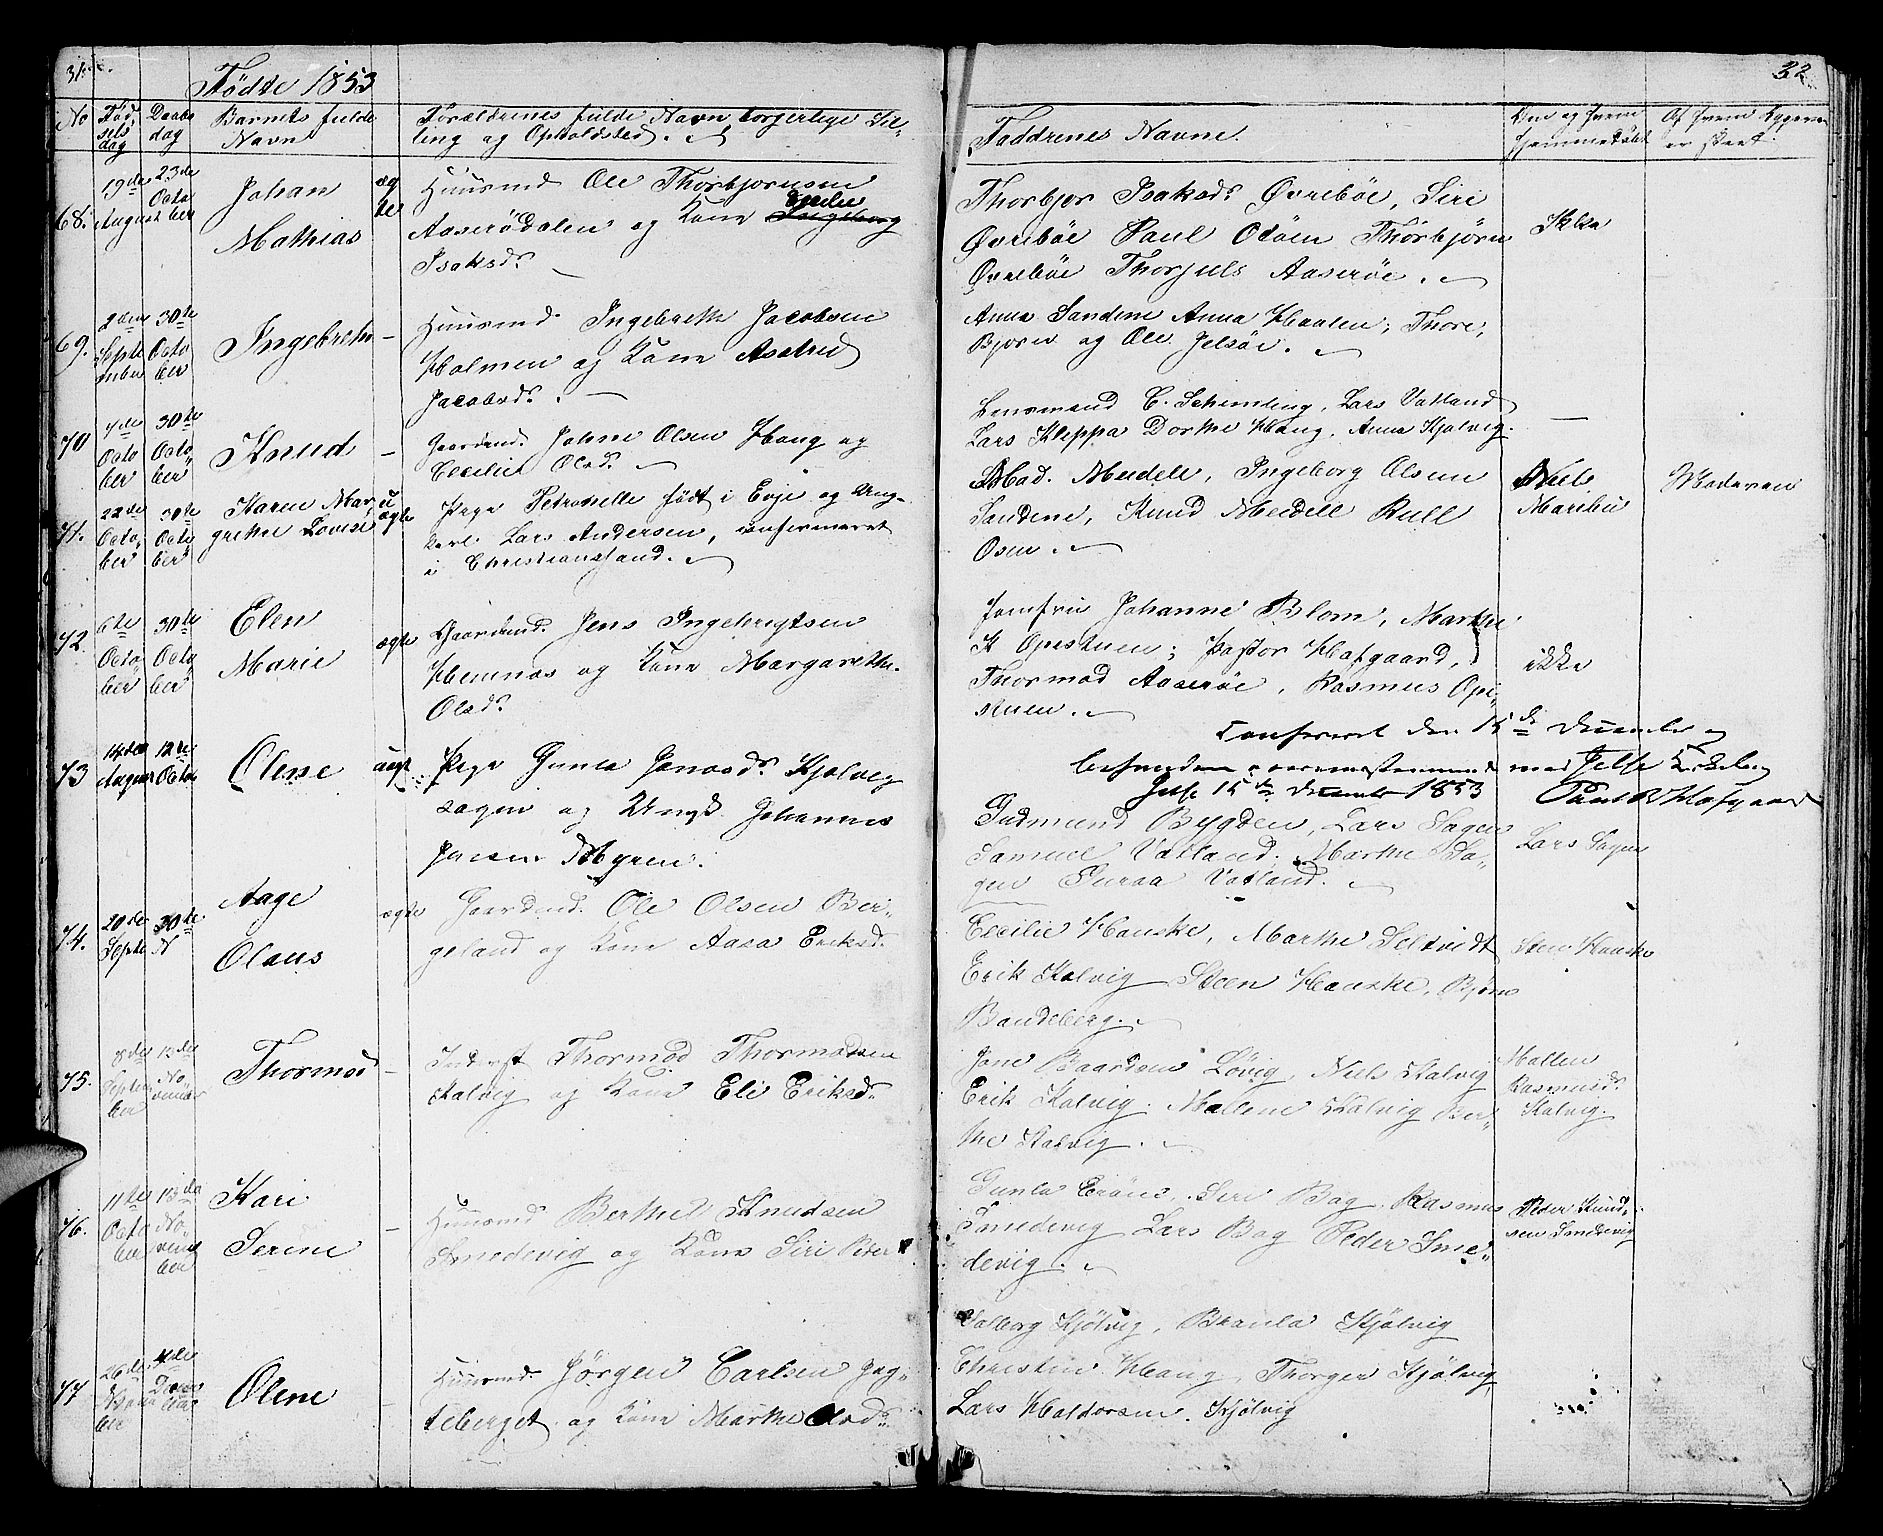 31.
Fødte 1853
No
Fød-
sels
dag
Daabs
dag
Barnets fulde
Navn
Forældrenes fulde Navn, borgerlige Stil-
ling og Opholdsted.
68.
19de
August
23de
Octo
ber
Johan
Mathias
æg
te
Huusmd Ole Thorbjørnsen
Aaserødalen og Kone Ingeborg
Isaksdr
69.
Septe
mber
30te
Octo
ber
Ingebreth
Huusmd Ingebreth Jacobsen
Holmen og Kone Aseltred
Jacobsdr.
70
Octo
ber
30te
Octo
ber
Knud
Gaardmd. John Olsen Haug og
Cecilie Olsdr
71.
22de
Octo
ber
30te
Octo
ber
Karen Mar
grethe Lovise
u
ægte
Pige Petronelle født i Evje og Ung-
karl Lars Andersen, confirmeret
i Christianssand.
72.
6te
Octo
ber
30te
Octo
ber
Elen
Marie
ægte
Gaardmd. Jens Ingebrigtsen
Hemnes og Kone Margarethe
Olsdr
73
14de
August
12te
Octo
Olene
uægt
Pige Gunla Jonasdr Kjølvig
sagen og Ungk. Johannes
Jansen Myren.
74.
20de
Septe
30te
Aage
Olaus
ægte
Gaardmd. Ole Olsen Ber-
geland og Kone Aasa Eriksdr
75.
8de
Septem
ber
13de
No
vember
Thormod
Inderst Thormod Thormodsen
Kalvig og Kone Eli Eriksdr
76.
11te
Octo
ber
13de
No
vem
ber
Kari
Serine
Huusmd Berthel Knudsen
Smedevig og Kone Siri Peder
77
26de
4de
Olene
Huusmd Jørgen Carlsen Jag-
teberget og Kone Marthe Olsdr
32
Faddrenes Navne.
Thorbjor Isaksdr Øvrebøe, Siri
Øvrebøe Paul Odden Thorbjørn
Øvrebøe Thorjuls Aaserøe.
Ikke
Anna Sandene Anna Haalen, Thore,
Bjørn og Ole Jelsøe.
Lensmand C. Schimling, Lars Vatland
Lars Kleppa Dorthe Haug, Anna Kjølvig.
Mad. Meidell, Ingeborg Olsen
Sandene, Knud Meidell Rull
Osen.
Niels
Maribu
Moderen
Jomfru Johanne Blom, Marthe
K Opestuen; Pastor Hofgaard,
Thormod Aaserøe, Rasmus Ope
stuen.
ikke
Confereret den 15de December og
befunden overensstemmende med Jelse Kirkebog
Jelse 15de December 1853
Gudmund Bygden, Lars Sagen
Samuel Vatland, Marthe Sa-
gen Guraa Vatland.
Lars Sagen
Cecilie Hauske, Marthe Seltveidt
Erik Kalvig Steen Hauske, Bjørn
Bandeberg.
Sten Hauske
Jone Baardsen Løvig, Niels Kalvig
Erik Kalvig. Mallene Kalvig Ber-
the Kalvig.
Mallen
Rasmusdr
Kalvig.
Gunla Erøen, Siri Bag, Rasmus
Smedevig Lars Bag Peder Sme-
devig.
Peder Knud-
sen Smedevig
Valborg Kjølvig, Kjølvig
Christin Haug, Thorger Kjølvig
Lars Haldorsen. Kjølvig